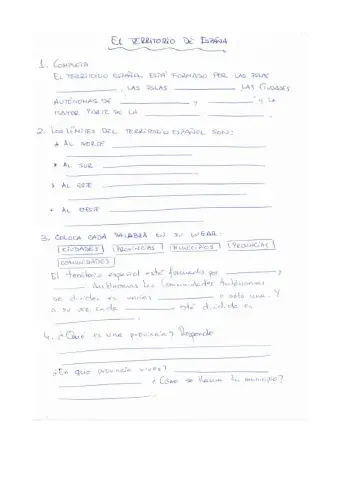 EL TERRITORIO DE ESPAÑA
1. COMPLETA
EL TERRITORIO ESPAÑOL ESTÁ FORMADO POR LAS ISLAS
, LAS ISLAS , LAS CIUDADES
AUTÓNOMAS DE Y Y LA
MAYOR PARTE DE LA
2. LOS LÍMITES DEL TERRITORIO ESPAÑOL SON:
* AL NORTE
* AL SUR
* AL ESTE
* AL OESTE
3. COLOCA CADA PALABRA EN SU LUGAR:
CIUDADES PROVINCIAS MUNICIPIOS PROVINCIAS
COMUNIDADES
El territorio español está formado por y
Autónomas. Las Comunidades Autónomas
se dividen en varias o sólo una. Y
a su vez cada está dividida en
4. ¿Qué es una provincia? Responde
¿En qué provincia vives?
¿Cómo se llama tu municipio?